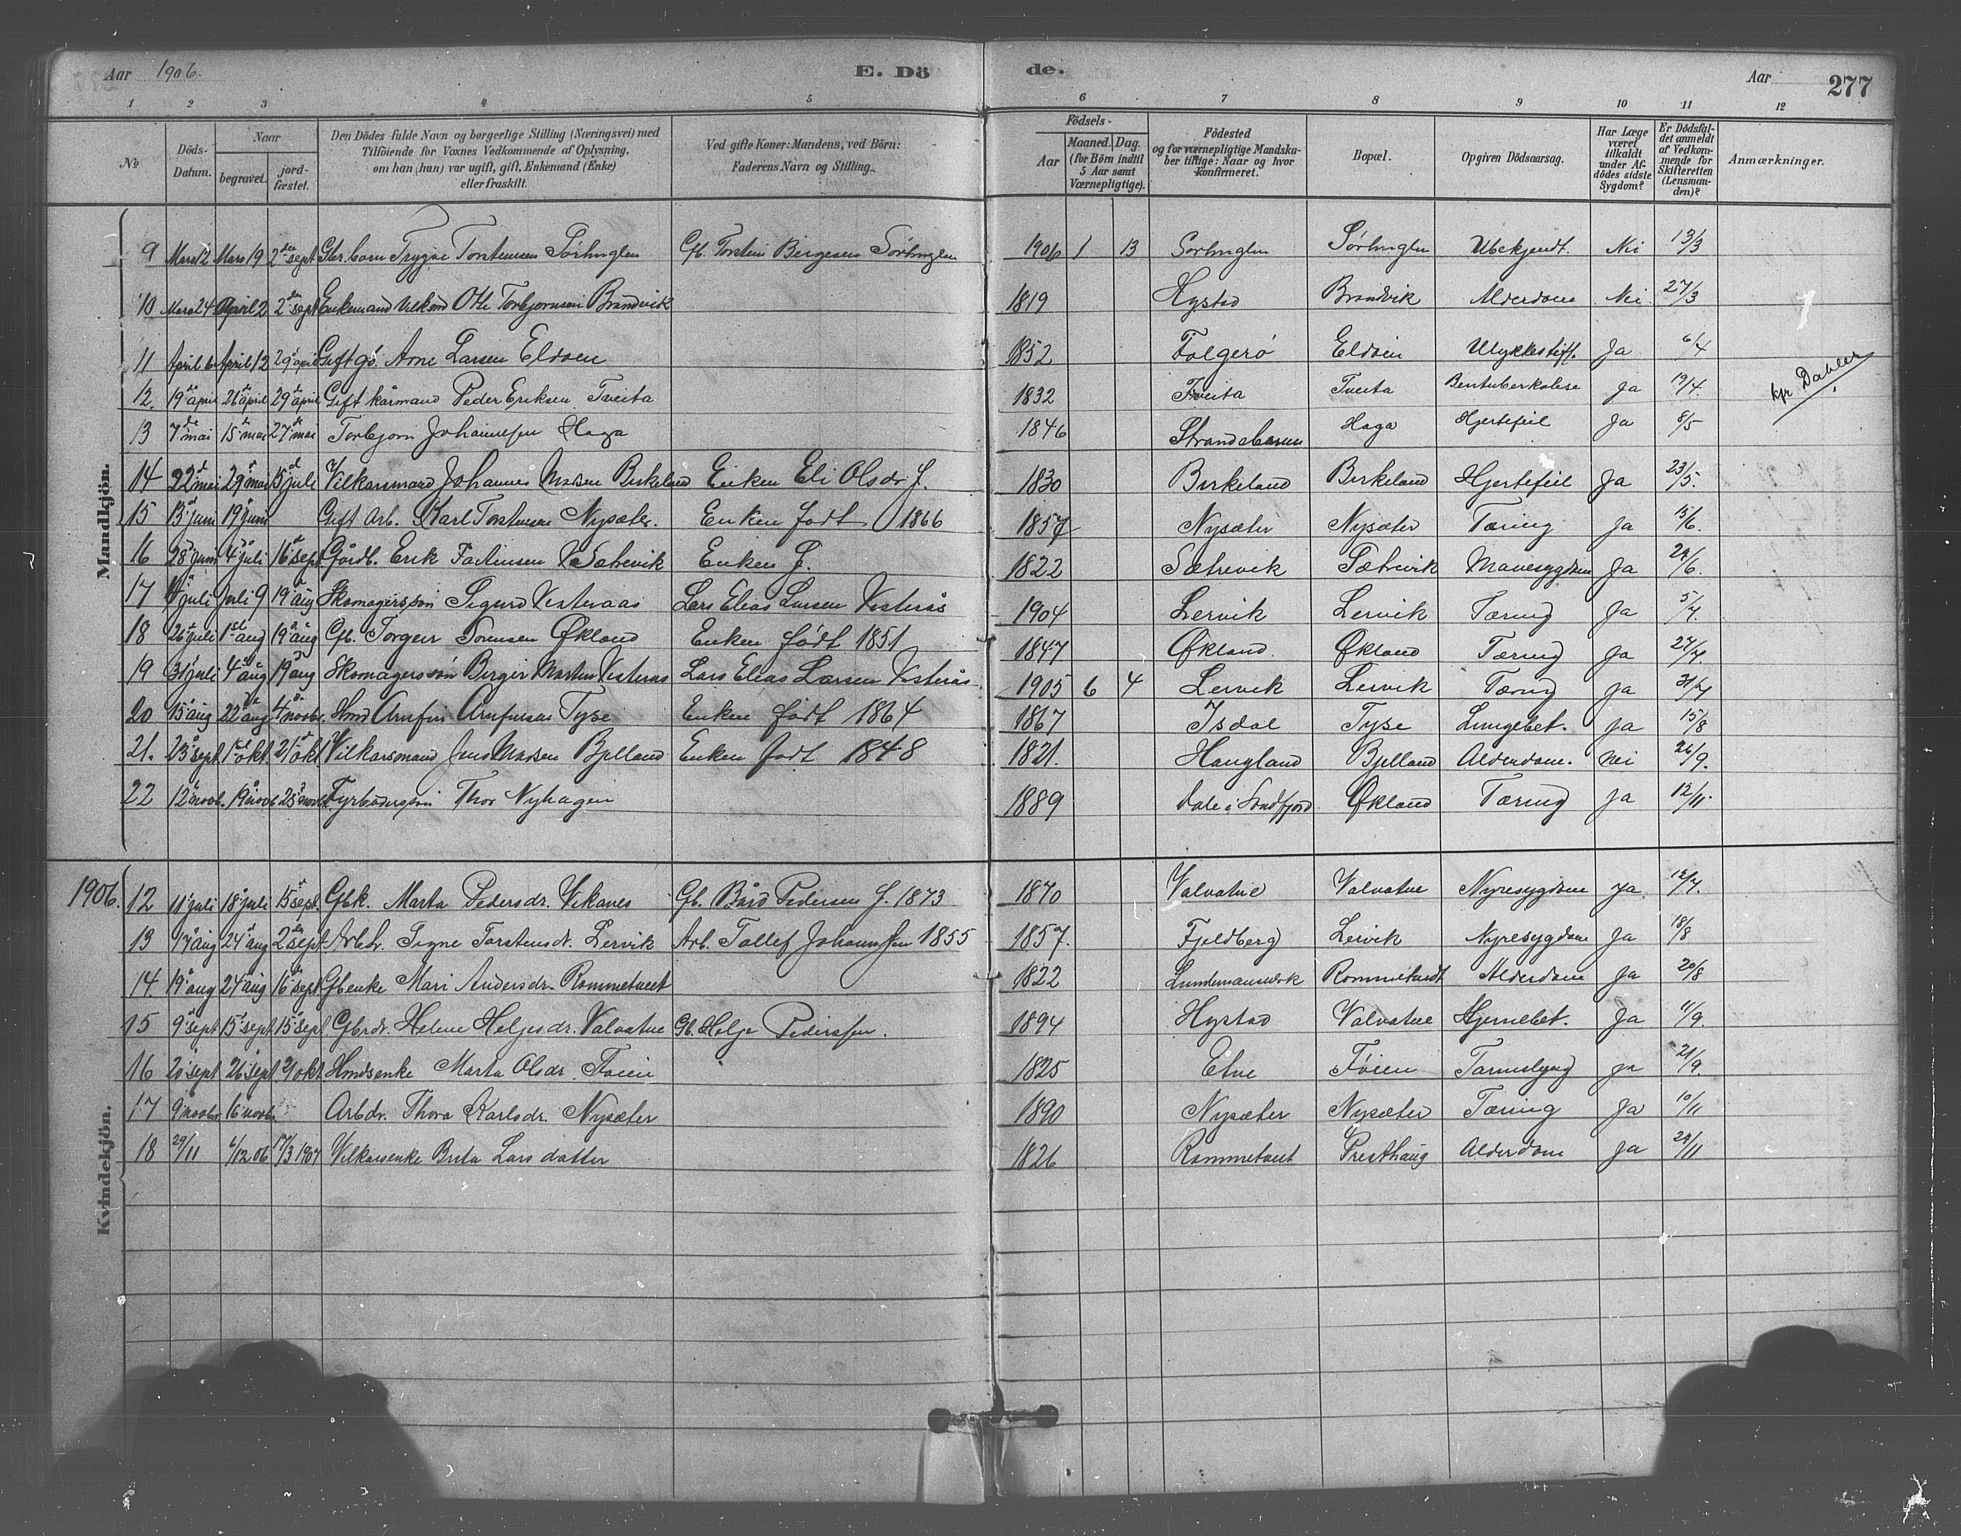 Aar 1906. E. Dö de. Aar 277
1 2 3 4 5 6 7 8 9 10 11 12
No
Döds-Datum.
Naar
begravet.
jord-fæstet.
Den Dödes fulde Navn og borgerlige Stilling (Næringsvei) med
Tilföiende for Voxnes Vedkommende af Oplysning,
om han (hun) var ugift, gift, Enkemand (Enke)
eller fraskilt.
Ved gifte Koner: Mandens, ved Börn:
Faderens Navn og Stilling.
Födsels-
Aar
Maaned. Dag.
(for Börn indtil
5 Aar samt
Værnepligtige).
Födested
og for værnepligtige Mandska-
ber tillige: Naar og hvor
konfirmeret.
Bopæl.
Opgiven Dödsaarsag.
Har Læge
været
tilkaldt
under Af-
dödes sidste
Sygdom?
Er Dödsfal-
det anmeldt
af Vedkom-
mende for
Skifteretten
(Lensman-
den)?
Anmærkninger.
Mandkjön.
9 Mars 12 Mars 19 2den sept Gbr. barn Trygve Torstensen Sørhuglen Gb. Torstein Bergesen Sørhuglen 1906 1 13 Sørhuglen Sørhuglen Ubekjendt. Nei 13/3
10 Mars 24 April 2 2den sept Enkemand Vilkmd Otli Torbjørnsen Brandvik 1819 Hystad Brandvik Alderdom Nei 27/3
11 April 6 April 12 29 april Gift gb. Arne Larsen Eldøen 1852 Folgerø Eldøen Ulykkestilf. Ja 6/4
12. 19de april 26de april 29de april Gift kårmand Peder Eriksen Tveita 1832 Tveita Tveita Bentuberkolose Ja 19/4. kpr Dahler
13 7de mai 15de mai 27de mai Torbjørn Johannessen Haga 1846 Strandebarm Haga Hjertefeil Ja 8/5
14 22d mai 29d mai 15d juli Vilkarsmand Johannes Matsen Birkeland Enken Eli Olsdr f. 1830 Birkeland Birkeland Hjertefeil Ja 23/5.
15 15d juni 19d juni Gift Arb. Karl Torstensen Nysæter. Enken født 1866 1857 Nysæter Nysæter Tæring Ja 15/6.
16 28d juni 4d juli 16d sept Gårdb. Erik Sætrevik Enken f. 1822 Sætrevik Sætrevik Mavesygdom Ja 29/6.
17 juli Juli 9 19 aug Skomagersøn Sigurd Vesteraas Lars Elias Larsen Vesterås 1904 Lervik Lervik Tæring Ja 5/7.
18 26 juli 1st aug 19d aug Gb. Torgeir Sørensen Økland Enken født 1851 1847 Økland Økland Tæring Ja 27/7.
19 31 juli 4d aug 19d aug Skomagerssøn Birger Martin Vesterås Lars Elias Larsen Vesterås 1905 6 4 Lervik Lervik Tæring Ja 31/7
20 15d aug 22d aug 4d novbr. Hmd Arnfin Arnfinsen Tyse Enken født 1864 1867 Isdal Tyse Lungebet. ja 15/8
21. 23d sept. 1st okt. 21d okt Vilkarsmand Jens Madsen Bjelland Enken født 1848 1821. Haugland Bjelland Alderdom. nei 26/9.
22 12d novb. 19d novb 25d novb Fyrbødersøn Thor Nyhagen 1889 Dale i Sondfjord Økland Tæring Ja 12/11.
Kvindekjön.
1906. 12 11 juli 18d juli 15d sept. Gbk. Marta Pedersdr. Vikanes Gb. Bård Pedersen f. 1873 1870 Valvatne Valvatne Nyresygdom ja 12/7.
13 17d aug 24d aug 2den sept. Arbk. Signe Torstensdr. Lervik Arb. Tollef Johannessen 1855 1857. Fjeldberg Lervik Nyresygdom Ja 18/8
14. 19d aug 24d aug 16d sept Gbenke Mari Andersdr. Rommetveit 1822 Lundemanswerk Rommetveit Alderdom Ja 20/8
15 9d sept 15d sept 15d sept Gbrdr. Helene Helgesdr. Valvatne Gb. Helge Pederssen. 1894 Hystad Valvatne Hjernebet. Ja 11/9.
16 20 sept 26d sept 21 okt Hmdsenke Marta Olsdr. Føien 1825 Etne Føien Tarmslyng ja 21/9.
17 9d novbr 16d novbr Arbdr. Thora Karlsdr. Nysæter 1890 Nysæter Nysæter Tæring Ja 10/11
18 29/11 6/12 06 17/3 1907 Vilkarsenke Brita Larsdatter 1826 Rommetveit Presthaug Alderdom Ja 29/11